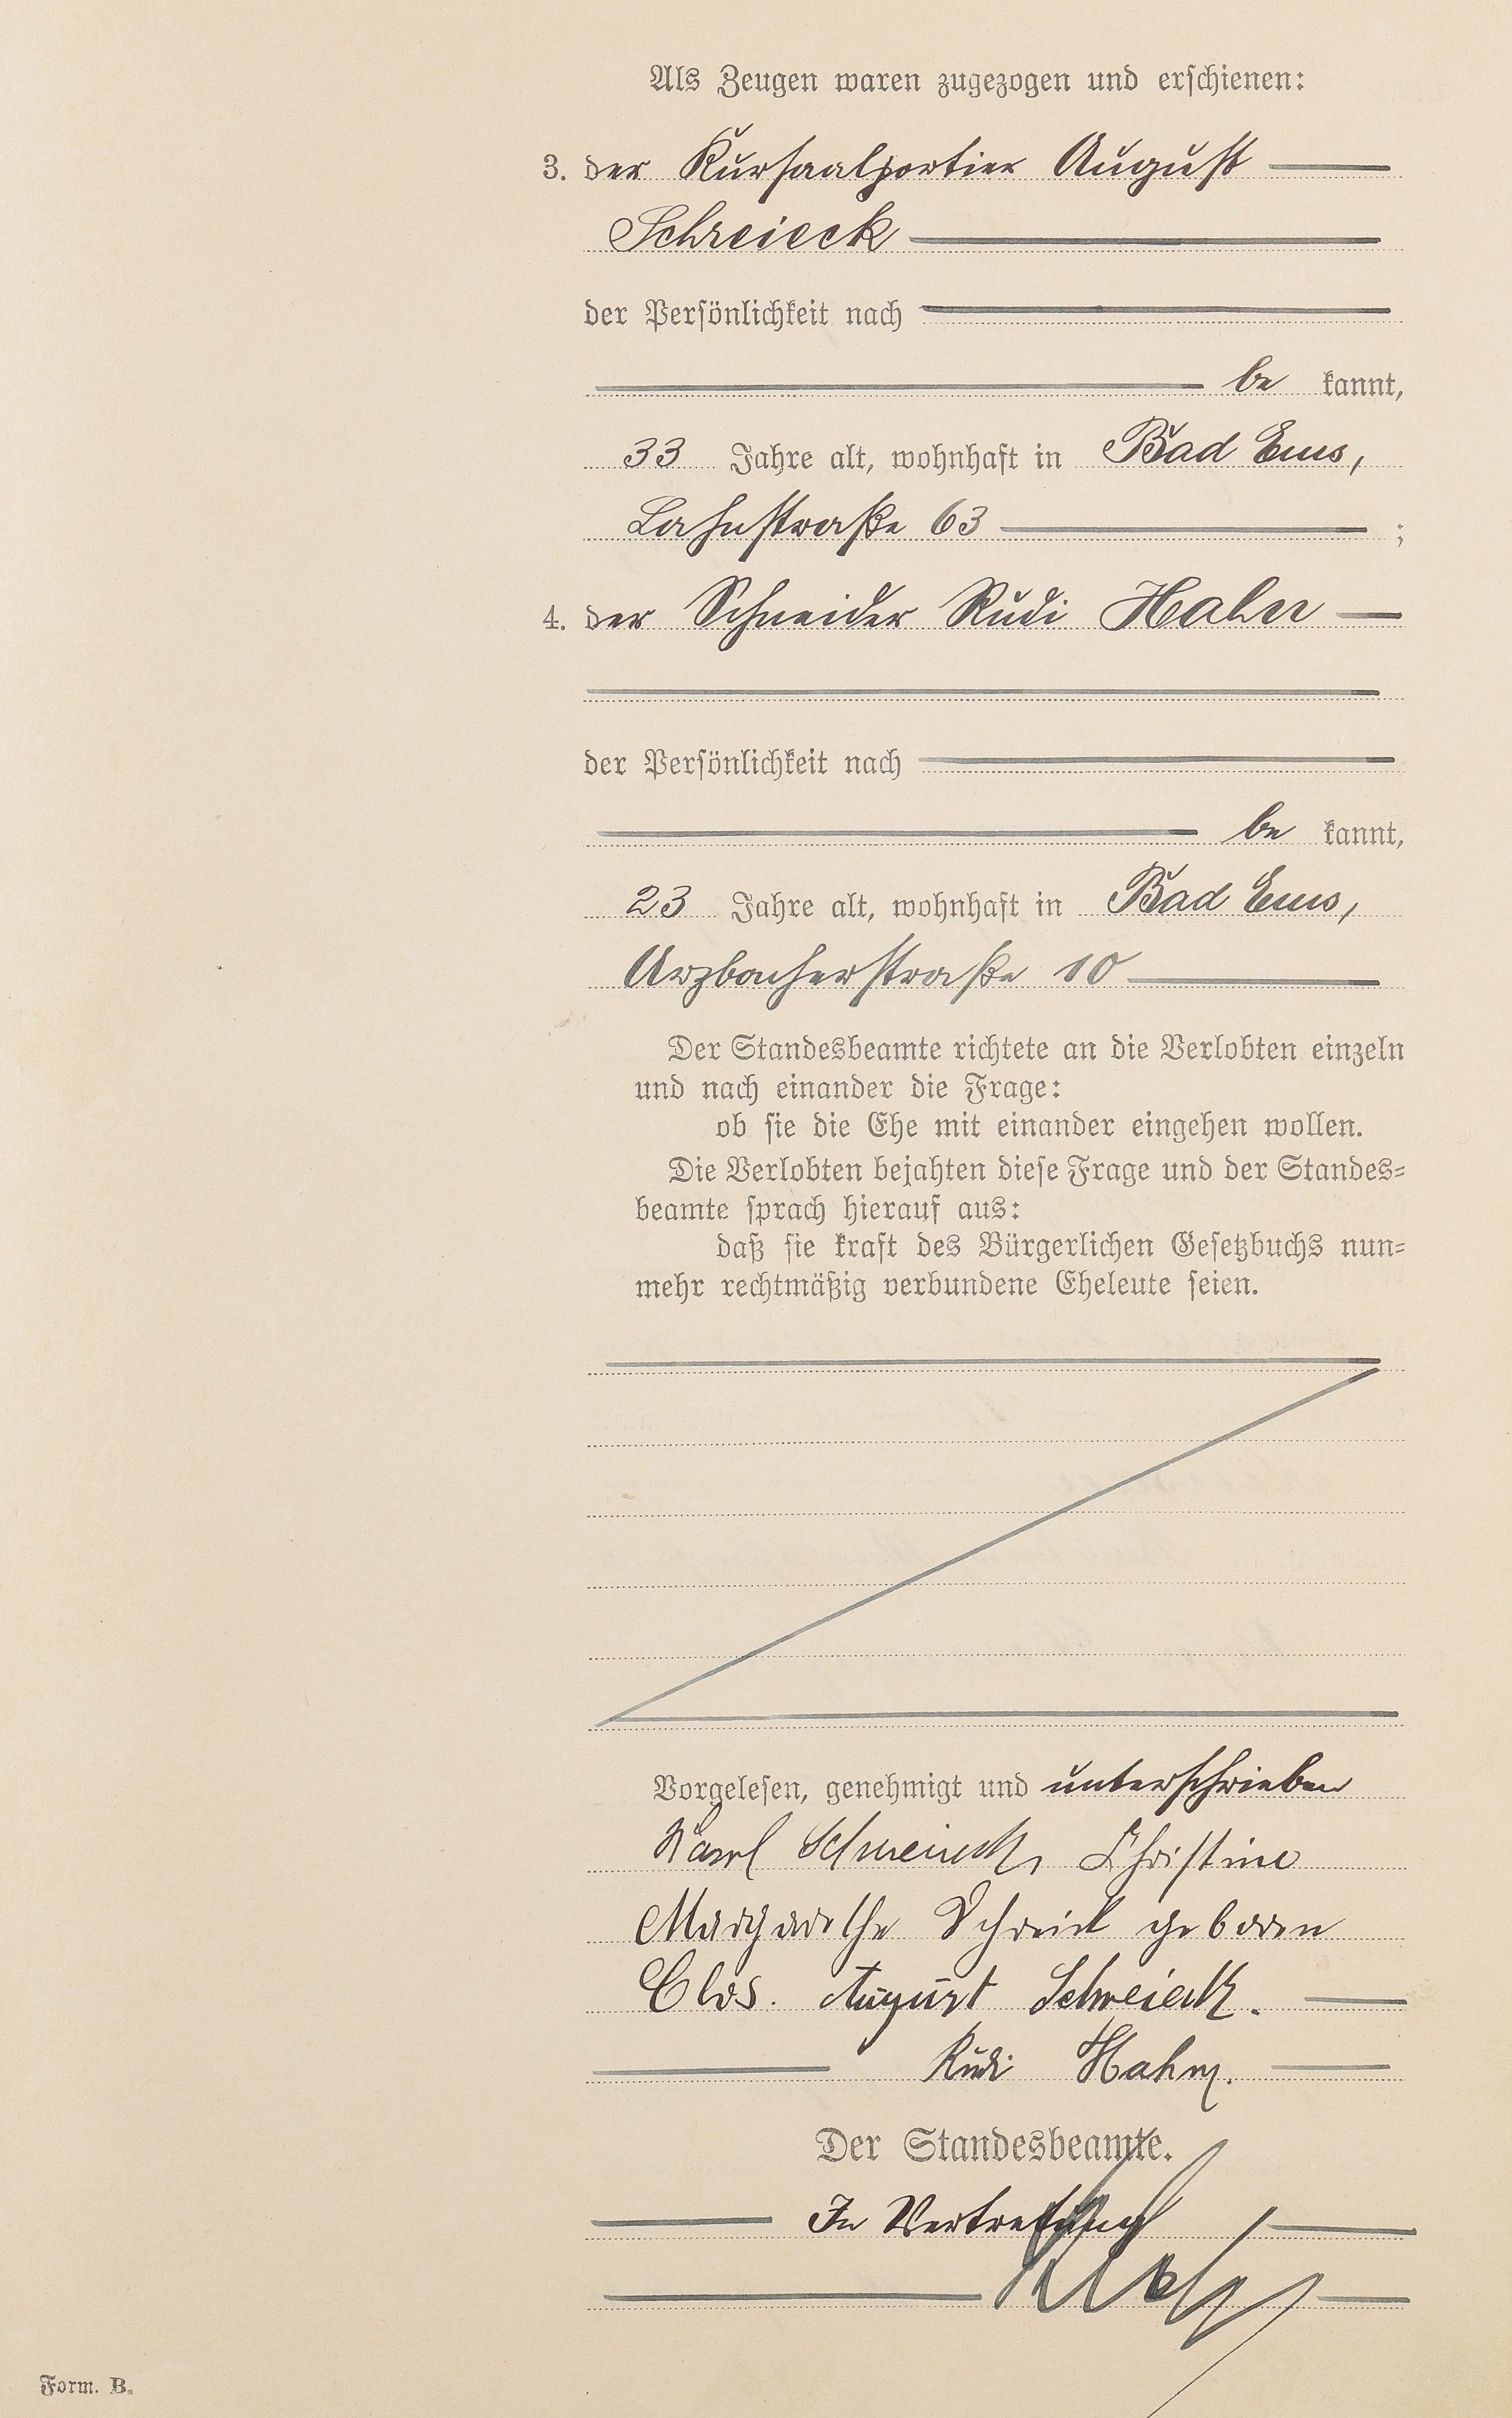 Als Zeugen waren zugezogen und erschienen:
3. der Kursaalportier August
Schreieck
der Persönlichkeit nach
be kannt,
33 Jahre alt, wohnhaft in Bad Ems,
Lahnstraße 63 ;
4. der Schneider Rudi Hahn
der Persönlichkeit nach
be kannt,
23 Jahre alt, wohnhaft in Bad Ems,
Arzbacherstraße 10
Der Standesbeamte richtete an die Verlobten einzeln
und nach einander die Frage:
ob sie die Ehe mit einander eingehen wollen.
Die Verlobten bejahten diese Frage und der Standes-
beamte sprach hierauf aus:
daß sie kraft des Bürgerlichen Gesetzbuchs nun-
mehr rechtmäßig verbundene Eheleute seien.
Vorgelesen, genehmigt und unterschrieben
Karl Schreieck, Christine
Margarethe Schreieck geboren
Clos. August Schreieck.
Rudi Hahn.
Der Standesbeamte.
In Vertretung
Form. B.